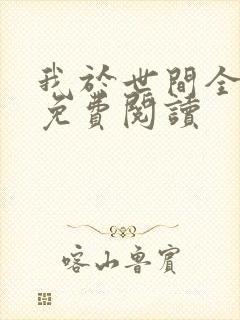 我於世間全
免費閱讀
喀山魯賓